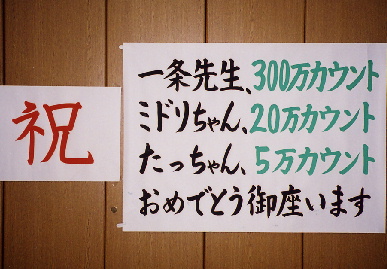 祝
一条先生、300万カウント
ミドリちゃん、20万カウント
たっちゃん、5万カウント
おめでとう御座います